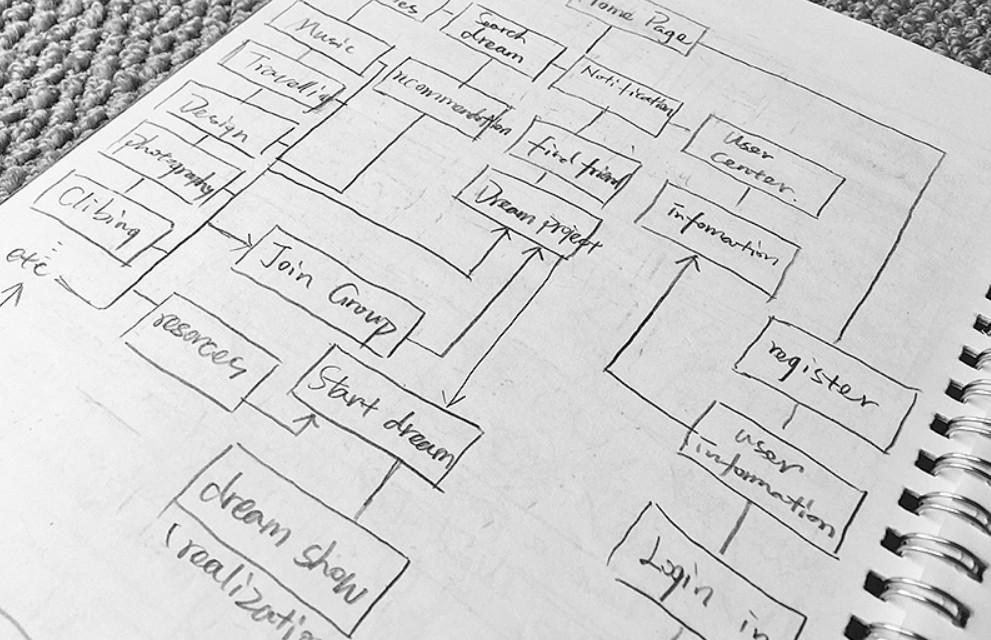 Home Page
Search
dream
Music
Notification
recommendation
Travellig
User
center.
Design
find friend
photography
Dream project
information
Clibing
Join Group
etc
register
resorces
Start dream
user
information
dream show
(realization
Login in